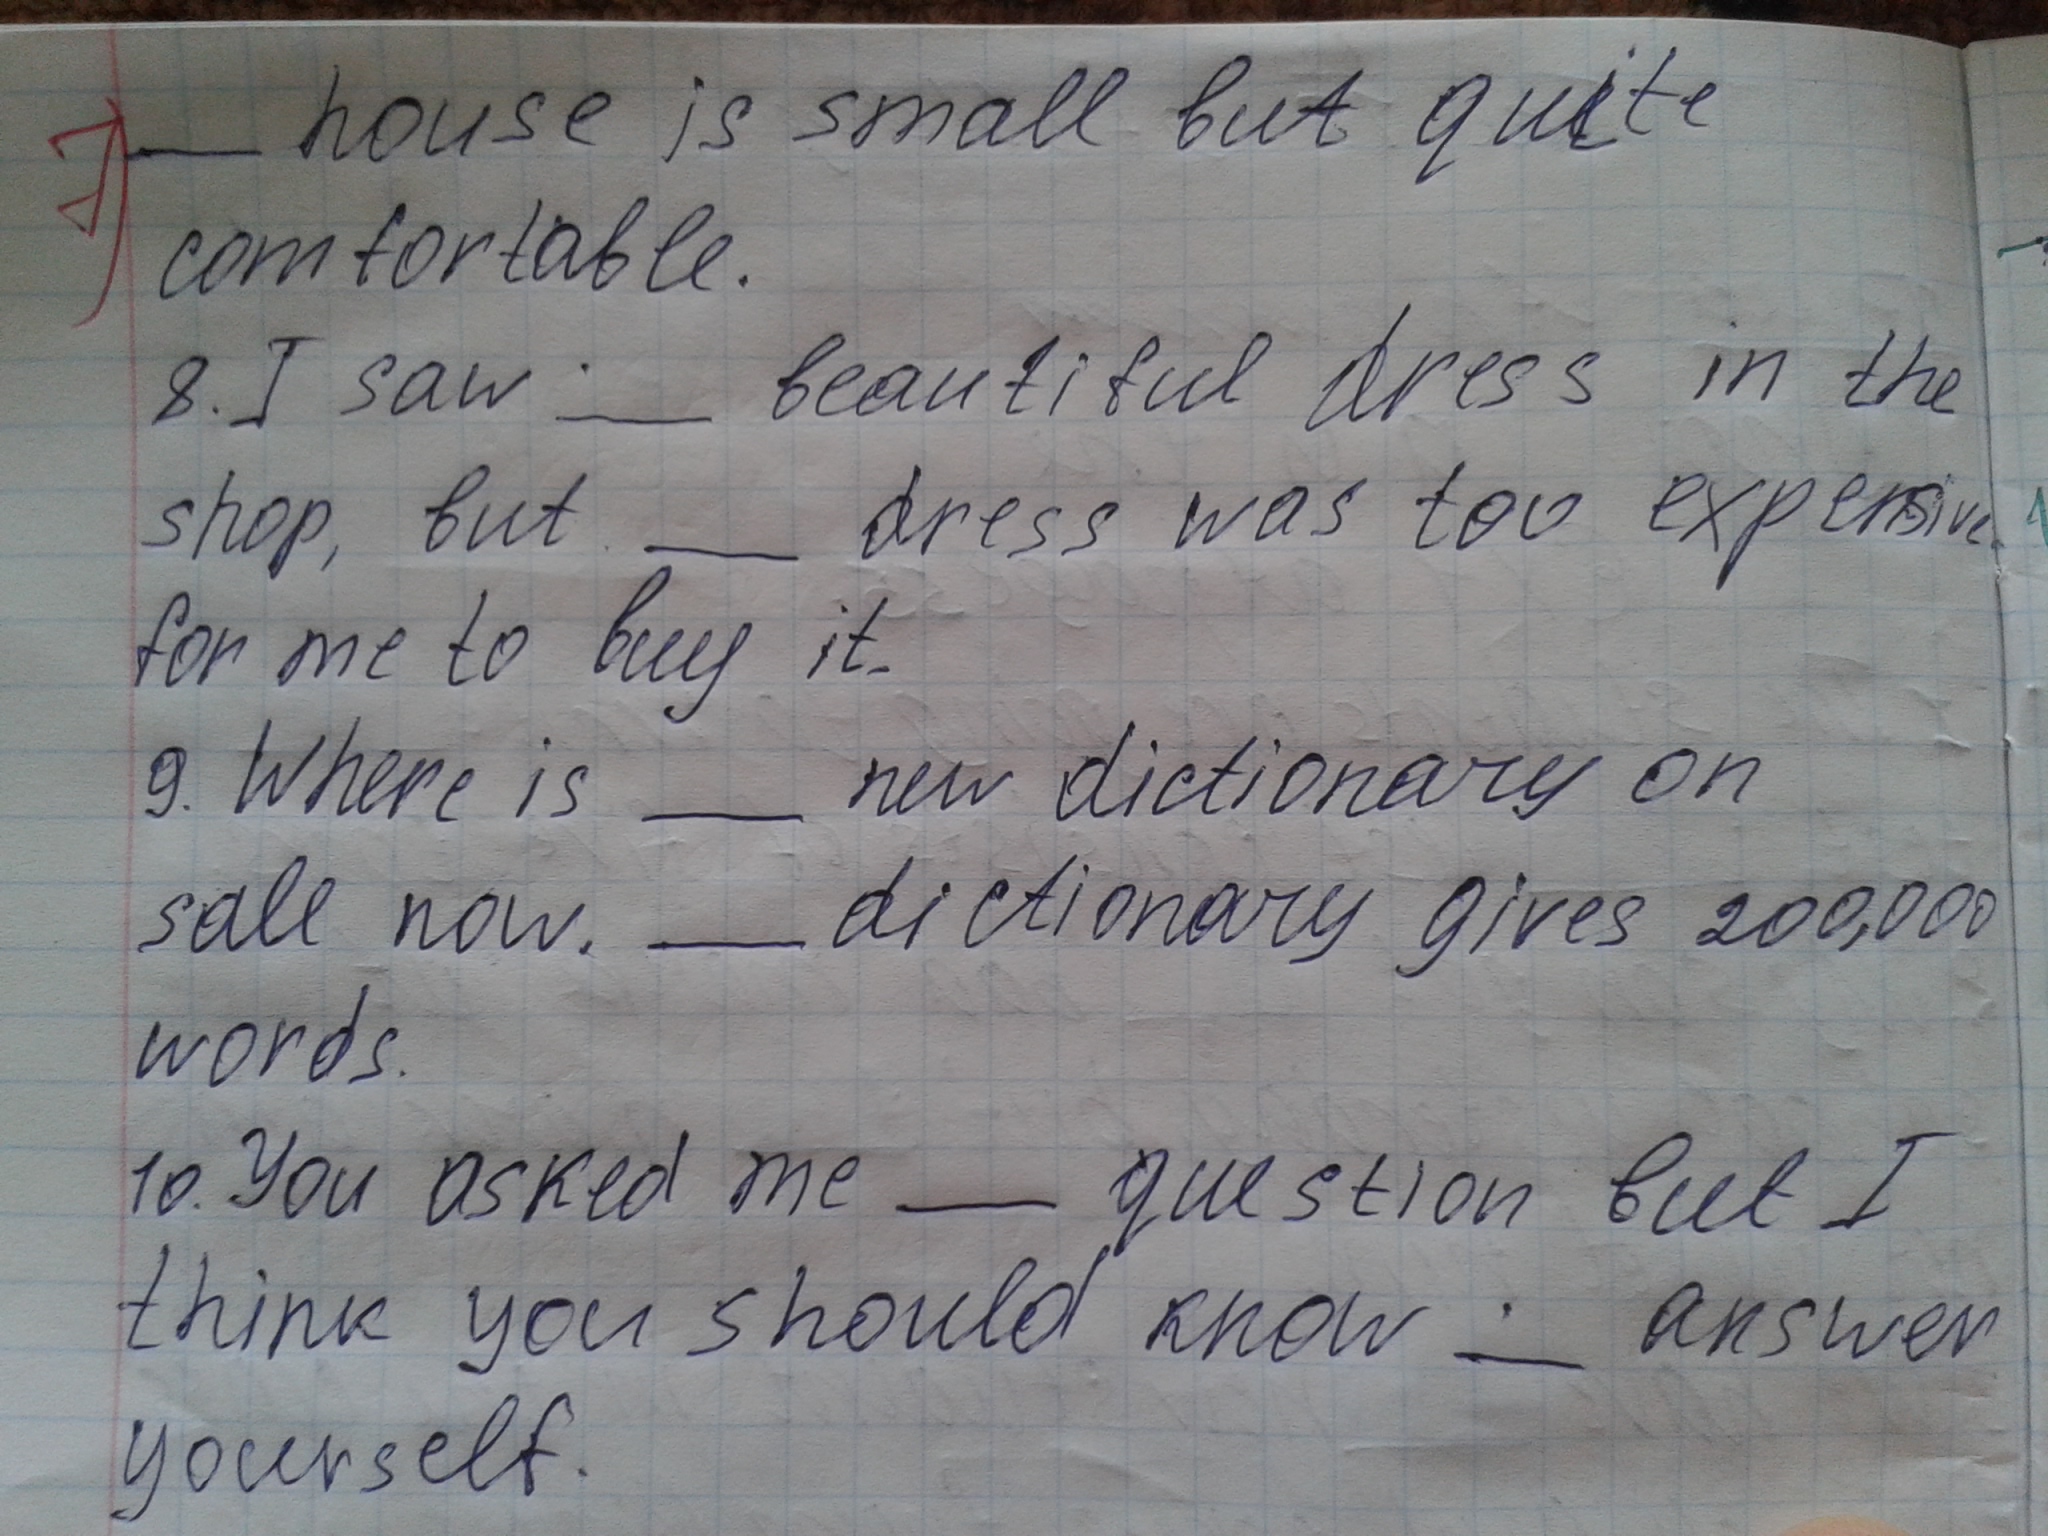 7) __ house is small but quite
comfortable.
8. I saw __ beautiful dress in the
shop, but __ dress was too expensive
for me to buy it.
9. Where is __ new dictionary on
sale now. __ dictionary gives 200,000
words.
10. You asked me __ question but I
think you should know __ answer
yourself.